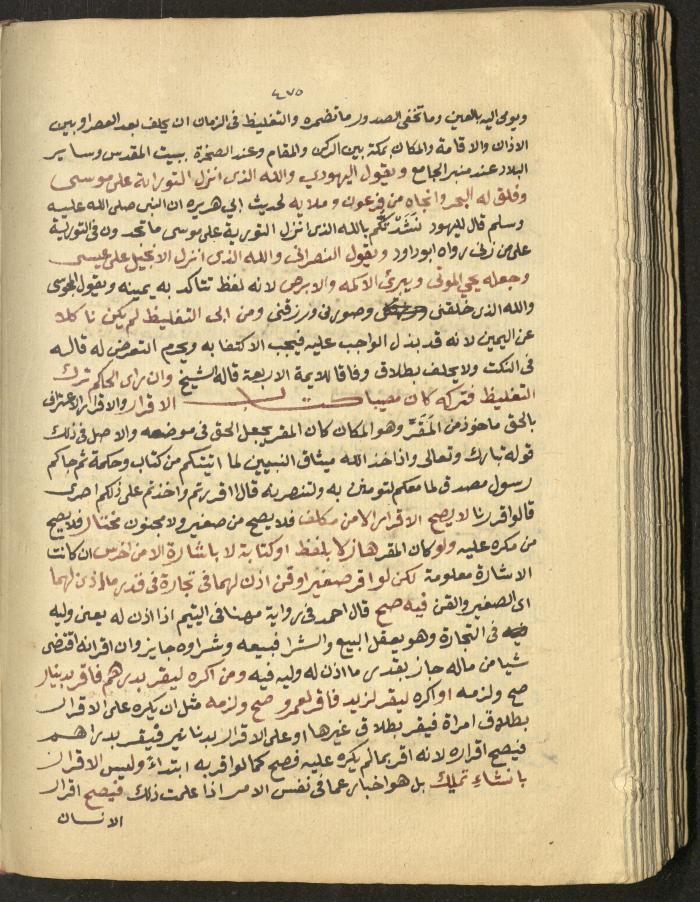 ٤٧٥
ويومى اليه بالعين وما تخفى الصدور ما تضمره والتغليظ فى الزمان ان يحلف بعد العصر او بين
الاذان والاقامة والمكان بمكة بين الركن والمقام وعند الصخرة ببيت المقدس وساير
البلاد عند منبر الجامع ويقول اليهودي والله الذى انزل التوراية على موسى
وفلق له البحر وانجاه من فرعون وملايه لحديث ابي هريره ان النبى صلى الله عليه
وسلم قال لليهود نَشَدْتكُم بالله الذى انزل التورية على موسى ما تجدون فى التورية
على من زنى رواه ابو داود ويقول النصرانى والله الذى انزل الانجيل على عيسى
وجعله يحي الموتى ويبرئ الاكمه والابرص لانه لفظ تتاكد به يمينه ويقول المجوسى
والله الذى خلقنى وصورنى ورزقنى ومن ابى التغليظ لم يكن ناكلا
عن اليمين لانه قد بذل الواجب عليه فيجب الاكتفا به ويحرم التعرض له قاله
فى النكت ولا يحلف بطلاق وفاقا للايمة الاربعة قاله الشيخ وان راى الحاكم ترك
التغليظ فتركه كان مصيبا كتاب الاقرار والاقرار الاعتراف
بالحق ماخوذ من المَقَرّ وهو المكان كان المقر يجعل الحق فى موضعه والاصل فى ذلك
قوله تبارك وتعالى واذ اخذ الله ميثاق النبيين لما اتيتكم من كتاب وحكمة ثم جاكم
رسول مصدق لما معكم لتومنن به ولتنصرنه قال ااقررتم واخذتم على ذلكم اصرى
قالوا قررنا لا يصح الاقرار الا من مكلف فلا يصح من صغير ولا مجنون مختار فلا يصح
من مكره عليه ولو كان المقر هازلا بلفظ او كتابة لا باشارة الا من اخرس ان كانت
الاشارة معلومة لكن لو اقر صغير او قن اذن لهما فى تجارة فى قدر ما اذن لهما
اى الصغير والقن فيه صح قال احمد فى رواية مهنا فى اليتيم اذا اذن له يعنى وليه
فى التجارة وهو يعقل البيع والشرا فبيعه وشراوه جايز وان اقر انه اقتضى
شيا من ماله جاز بقدر ما اذن له وليه فيه ومن اكره ليقر بدرهم فاقر بدينار
صح ولزمه او اكره ليقر لزيد فاقر لعمرو صح ولزمه مثل ان يكره على الاقرار
بطلاق امراة فيقر بطلاق غيرها او على الاقرار بدنانير فيقر بدراهم
فيصح اقراره لانه اقر بما لم يكره عليه فصح كما لو اقر به ابتداءً وليس الاقرار
بانشاءِ تمليك بل هو اخبار عما فى نفس الامر اذا علمت ذلك فيصح اقرار
الانسان